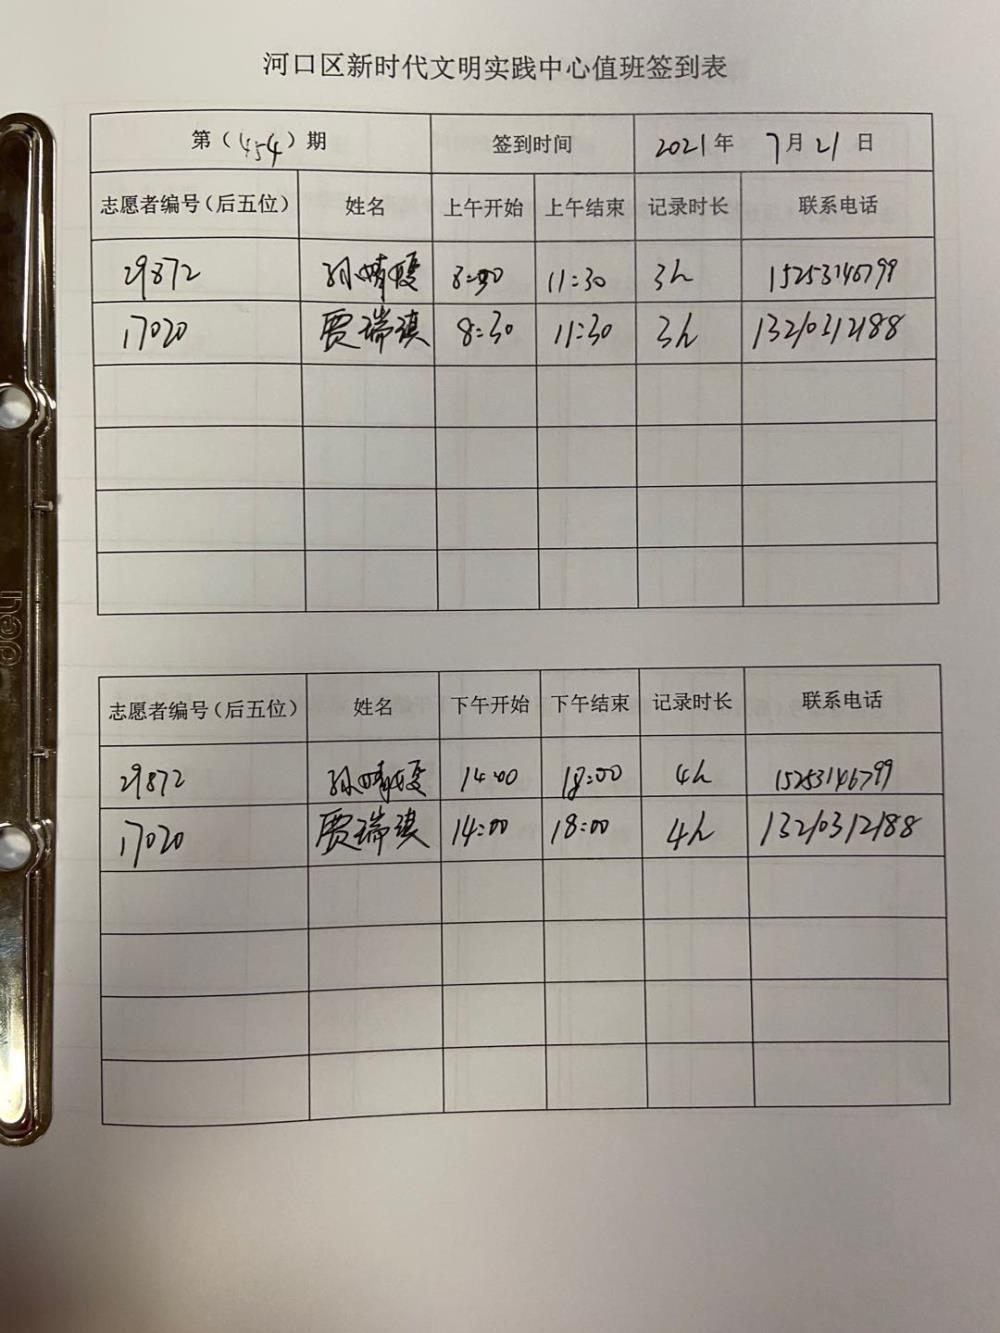 河口区新时代文明实践中心值班签到表
第（454）期 签到时间 2021年 7月21日
志愿者编号（后五位） 姓名 上午开始 上午结束 记录时长 联系电话
29872 孙晴 8:30 11:30 3h 15253146799
17020 贾瑞琪 8:30 11:30 3h 13210312188
志愿者编号（后五位） 姓名 下午开始 下午结束 记录时长 联系电话
29872 孙晴 14:00 18:00 4h 15253146799
17020 贾瑞琪 14:00 18:00 4h 13210312188